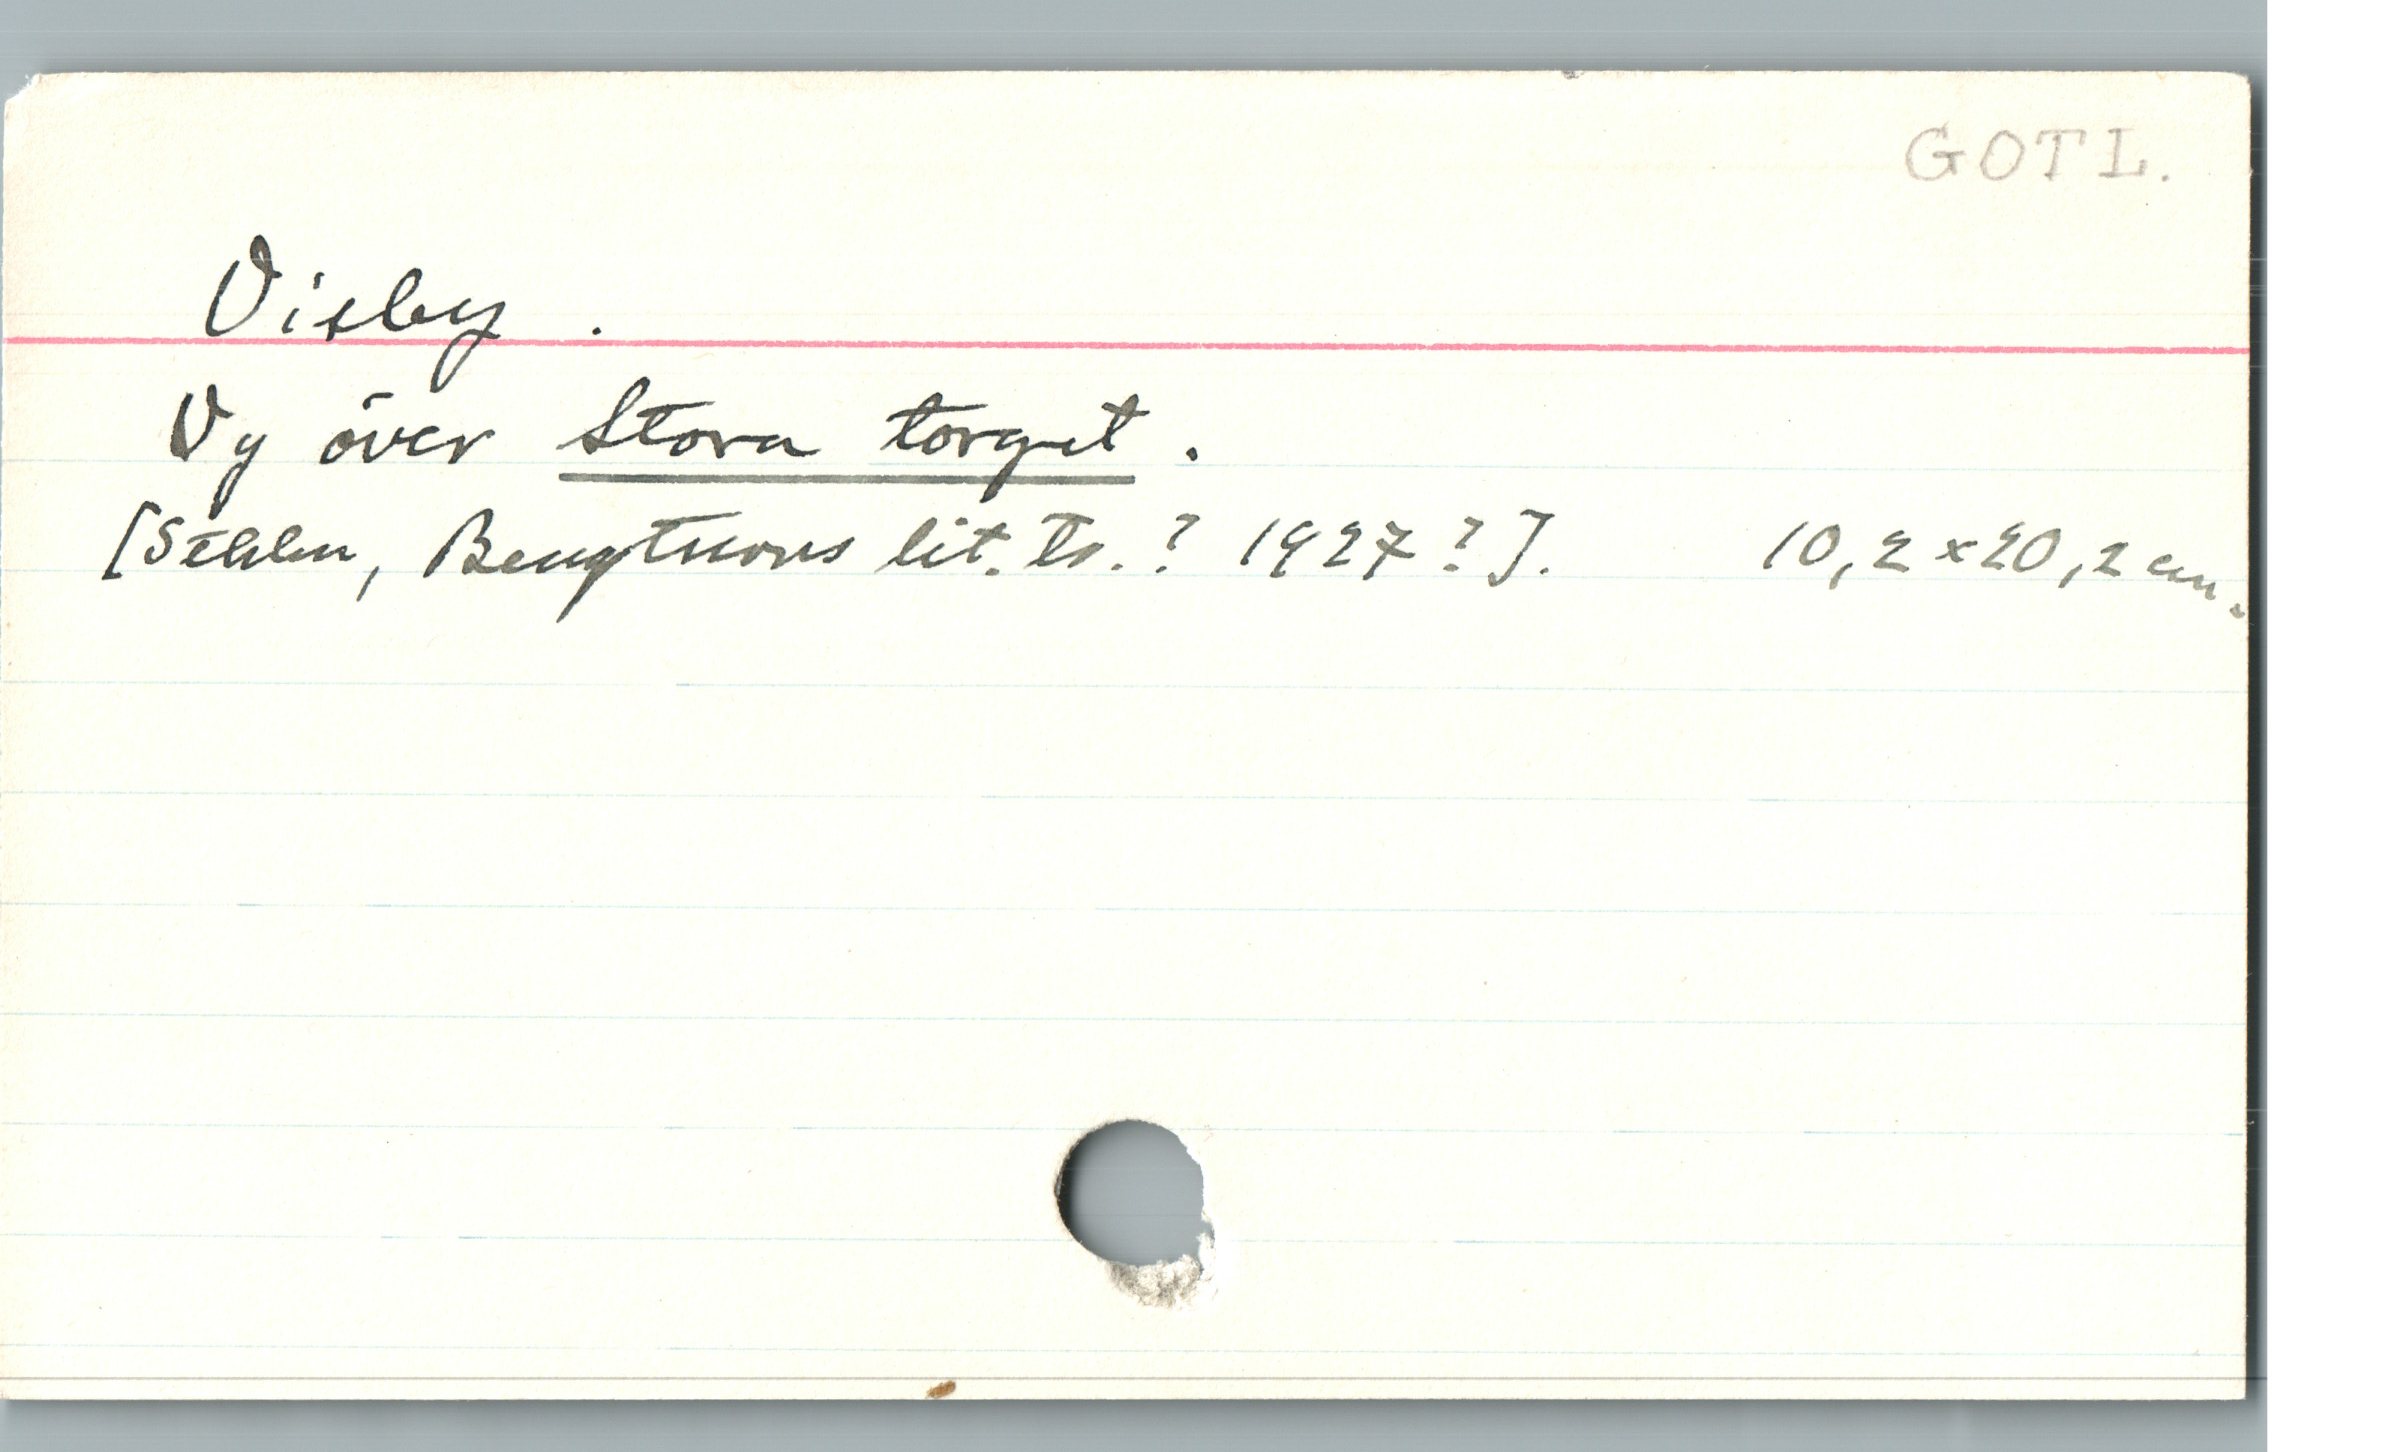 GOTL.
Visby.
Vy över Stora torget.
[Sthlm, Bengtssons lit. tr.? 1927?]. 10,2 x 20,2 cm.